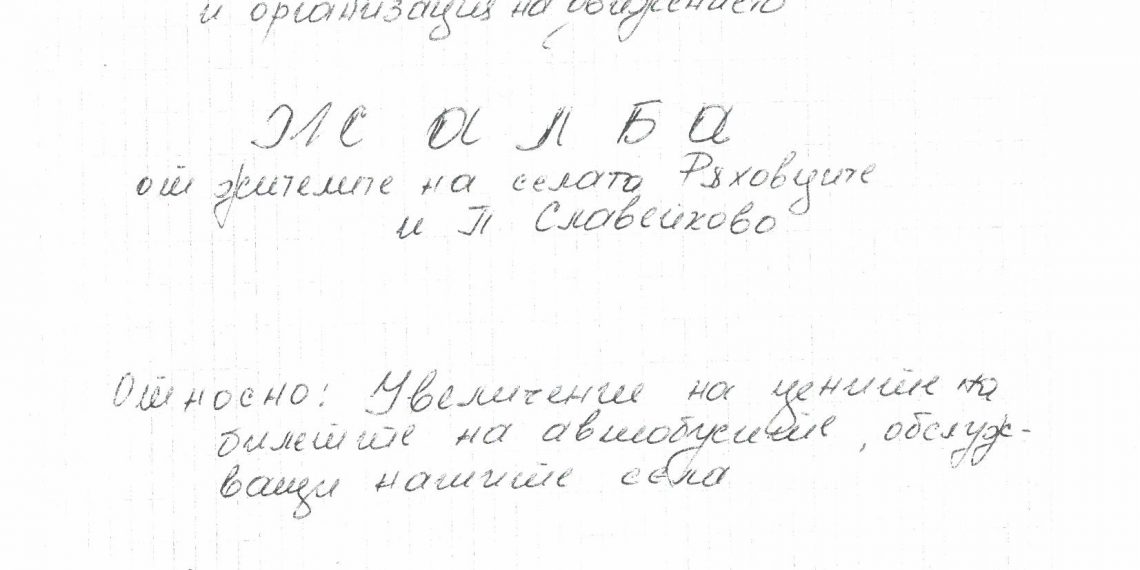 и организация на движението
Ж А Л Б А
от жителите на селата Ряховците
и П Славейково
Относно: Увеличение на цените на
билетите на автобусите, обслуж-
ващи нашите села